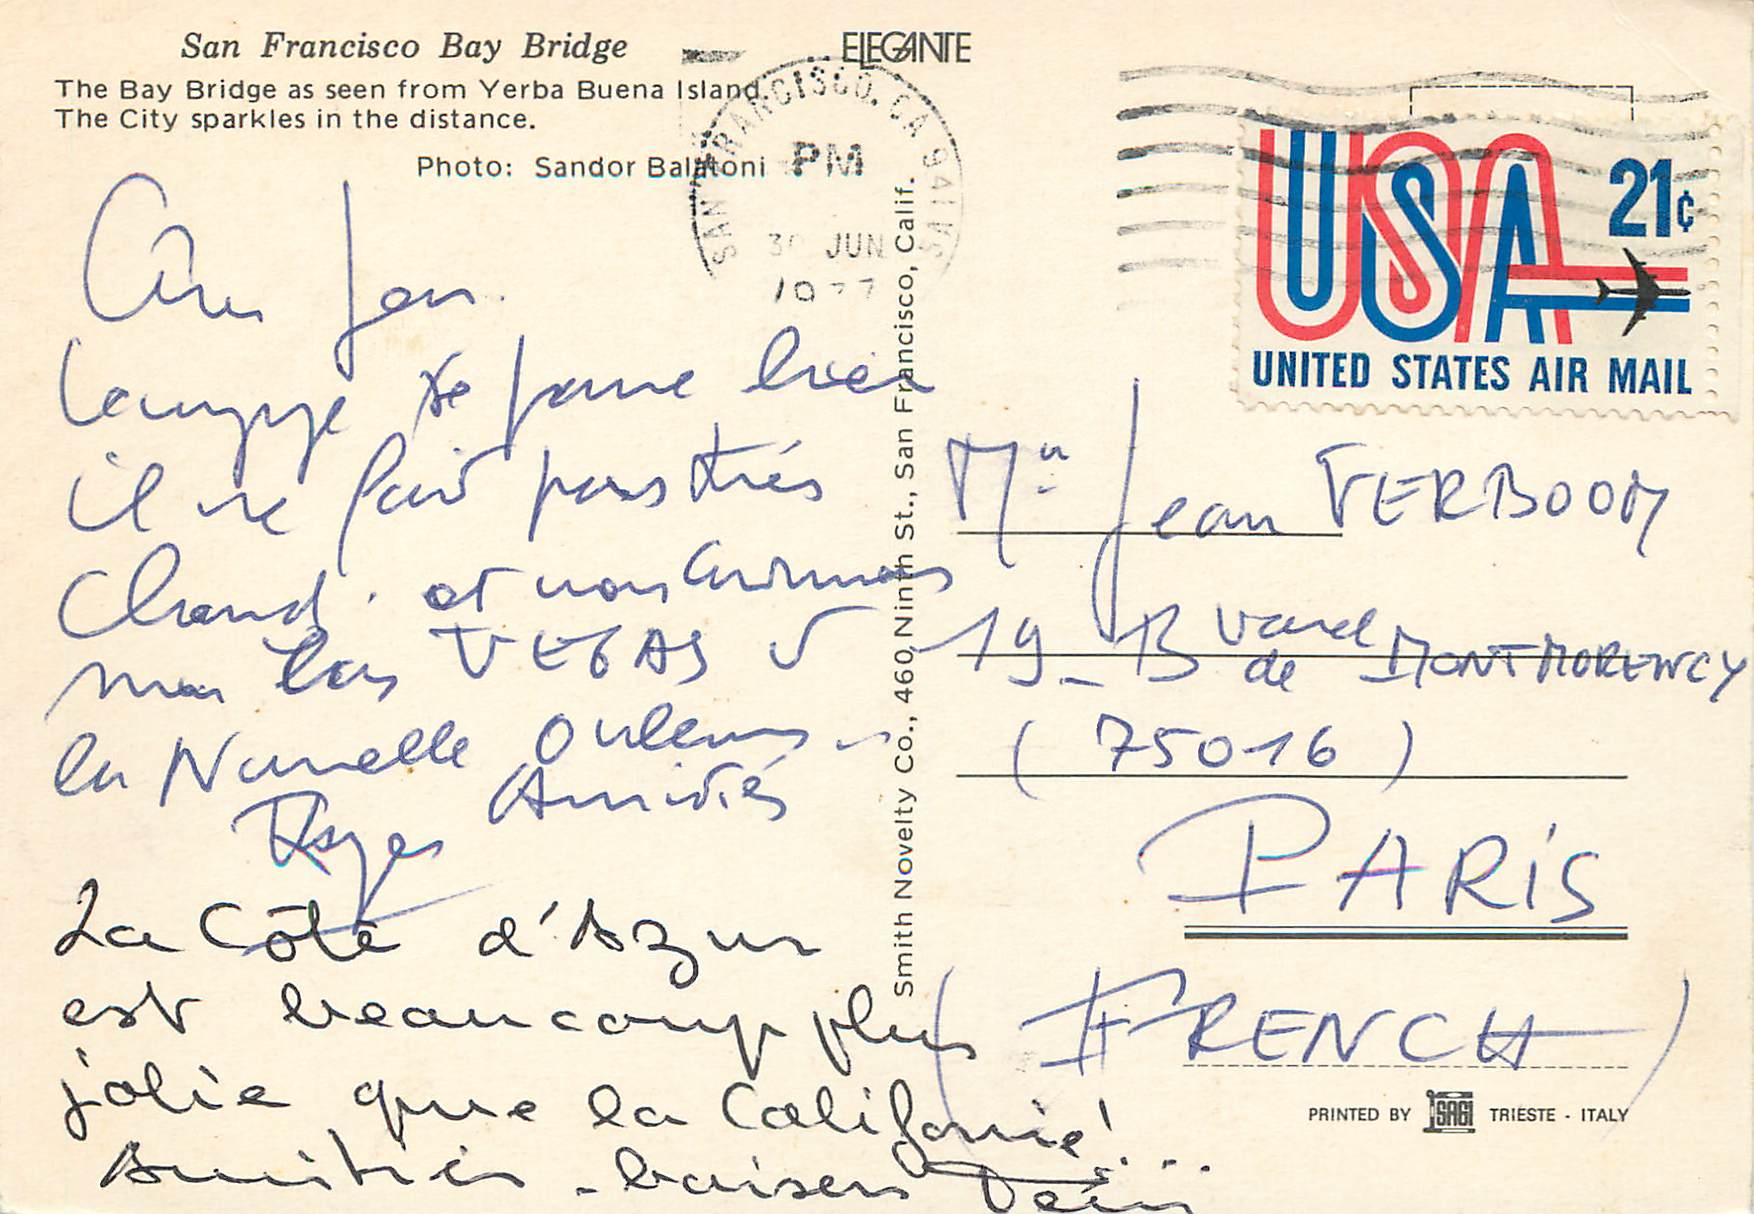 San Francisco Bay Bridge
The Bay Bridge as seen from Yerba Buena Island.
The City sparkles in the distance.
Photo: Sandor Balatoni
ELEGANTE
SAN FRANCISCO, CA 941
PM
30 JUN
1977
USA 21¢
UNITED STATES AIR MAIL
Cher Jean.
se passe bien
il ne fait pas très
Chaud. et nous
LAS VEGAS
la Nouvelle Orléans
Amitiés
Roger
La Côte d'Azur
est beaucoup plus
jolie que la Californie!...
Amitiés - baisers
Smith Novelty Co., 460 Ninth St., San Francisco, Calif.
Mr Jean VERBOOM
19 - Bvard de MONTMORENCY
(75016)
PARIS
(FRENCH)
PRINTED BY SAGI TRIESTE - ITALY